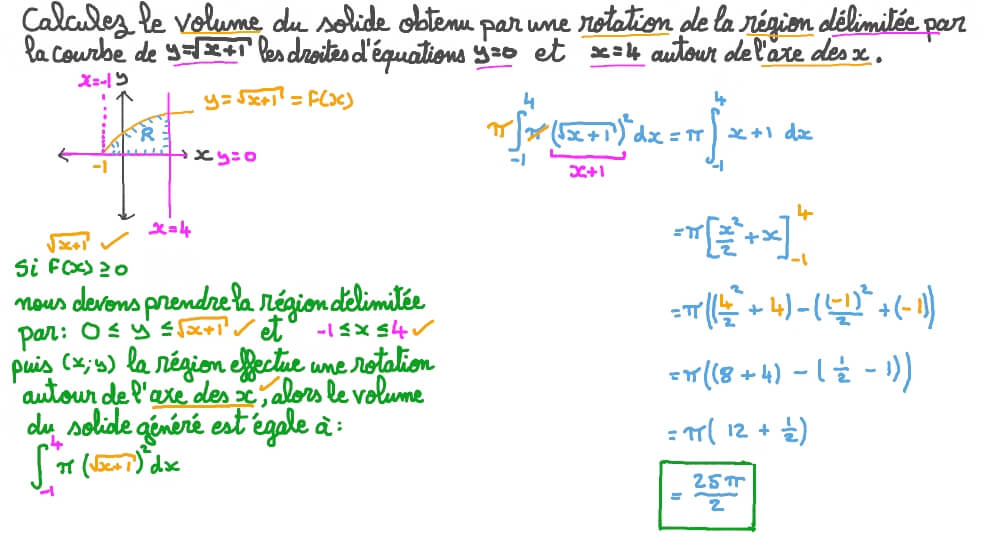 Calculez le volume du solide obtenu par une rotation de la région délimitée par
la courbe de y=√(x+1) les droites d'équations y=0 et x=4 autour de l'axe des x.
x=-1 y
y=√(x+1) = f(x)
R
x y=0
-1
x=4
√(x+1) ✓
Si f(x) ≥ 0
nous devons prendre la région délimitée
par: 0 ≤ y ≤ √(x+1) ✓ et -1 ≤ x ≤ 4 ✓
puis (x;y) la région effectue une rotation
autour de l'axe des x ✓, alors le volume
du solide généré est égale à:
∫₋₁⁴ π (√(x+1))² dx
π ∫₋₁⁴ π (√(x+1))² dx = π ∫₋₁⁴ x+1 dx
x+1
= π [x²/2 + x]₋₁⁴
= π((4²/2 + 4) - ((-1)²/2 + (-1))
= π((8 + 4) - (1/2 - 1))
= π( 12 + 1/2)
= 25π/2